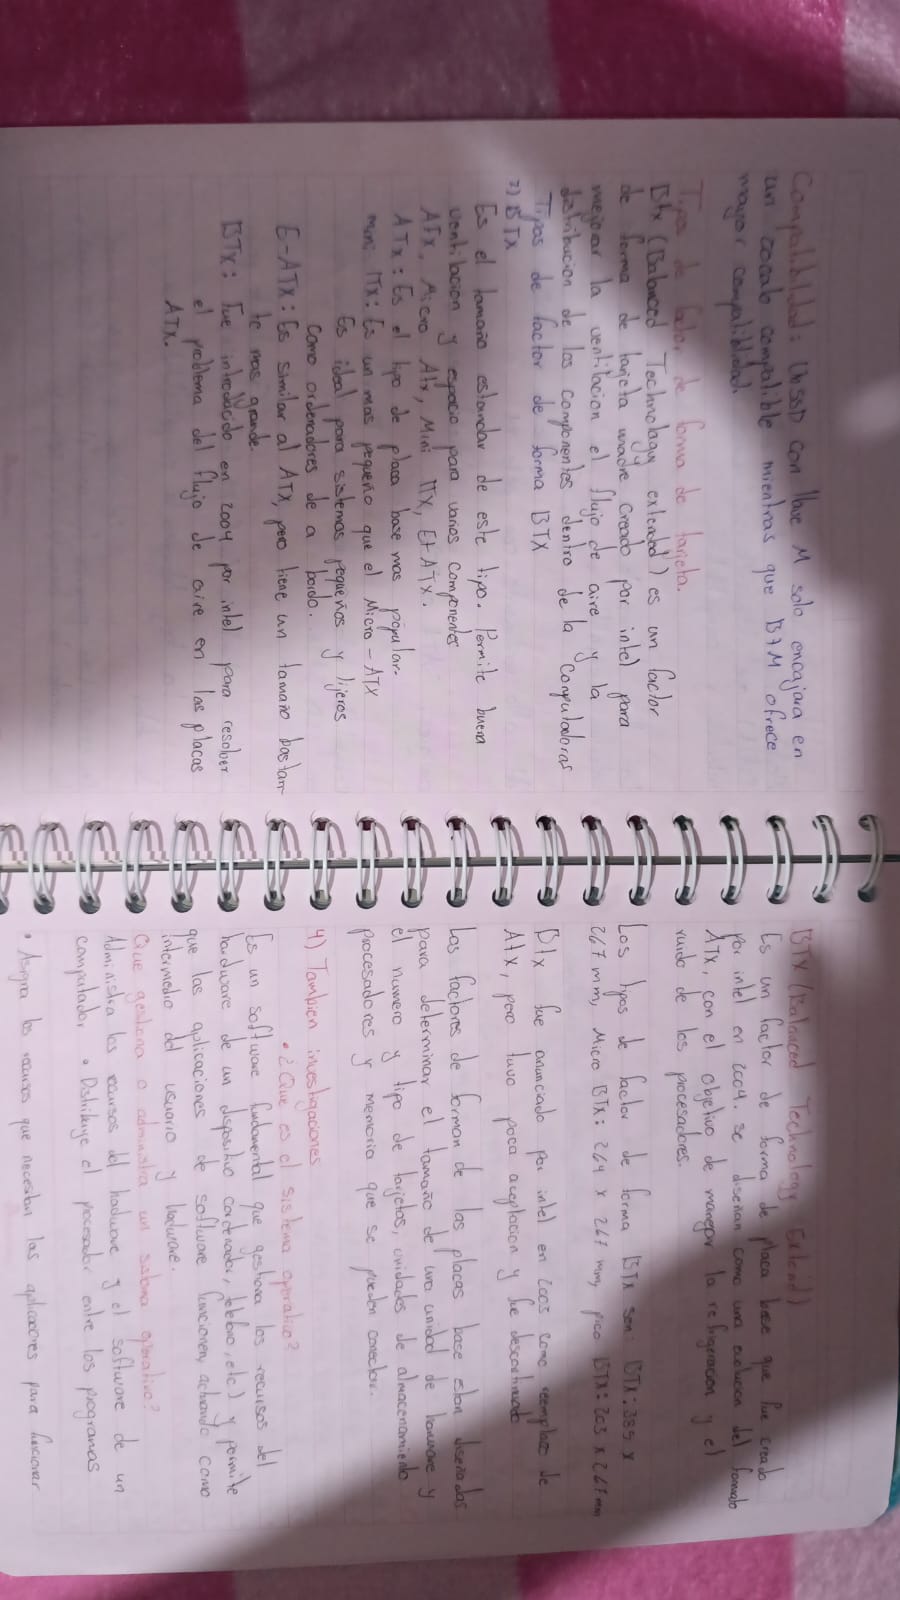 Compatibilidad: Un SSD con llave M solo encajara en
un zocalo compatible mientras que B+M ofrece
mayor compatibilidad.
Tipos de factor de forma de tarjeta.
Btx (Balanced Technology extended) es un factor
de forma de tarjeta madre creado por intel para
mejorar la ventilacion el flujo de aire y la
distribucion de los componentes dentro de la computadoras
Tipos de factor de forma BTX
BTX
Es el tamaño estandar de este tipo. Permite buena
ventilacion y espacio para varios componentes
ATX, Micro Atx, Mini ITX, E+ATX.
ATX: Es el tipo de placa base mas popular.
mini ITX: Es un mas pequeño que el Micro-ATX
Es ideal para sistemas pequeños y lijeros
como ordenadores de a bordo.
E-ATX: Es similar al ATX, pero tiene un tamaño bastan-
te mas grande.
BTX: Fue introducido en 2004 por intel para resolber
el problema del flujo de aire en las placas
ATX.
BTX (Balanced Technology Extend)
Es un factor de forma de placa base que fue creado
por intel en 2004. se diseñan como una evolucion del formato
ATX, con el objetivo de manegar la refrigeracion y el
ruido de los procesadores.
Los tipos de factor de forma BTX son: BTX: 325 x
267 mm, Micro BTX: 264 x 267 mm, pico BTX: 203 x 267 mm
Btx fue anunciado por intel en como reemplazo de
Atx, pero tuvo poca aceptacion y fue descontinuado
Los factores de forman de las placas base estan diseñados
para determinar el tamaño de una unidad de y
el numero y tipo de tarjetas, unidades de almacenamiento
procesadores y memoria que se pueden conectar.
4) Tambien investigaciones
• ¿Que es el sistema operativo?
Es un software fundamental que gestiona los recursos del
hardware de un dispositivo etc) y permite
que las aplicaciones de software funcionen, actuando como
intermedio del usuario y hadware.
Que gestiona o administra un sistema operativo?
Administra los recursos del hadware y el software de un
computador. • Distribuye el procesador entre los programas
• Asigna los recursos que necesitan las aplicaciones para funcionar